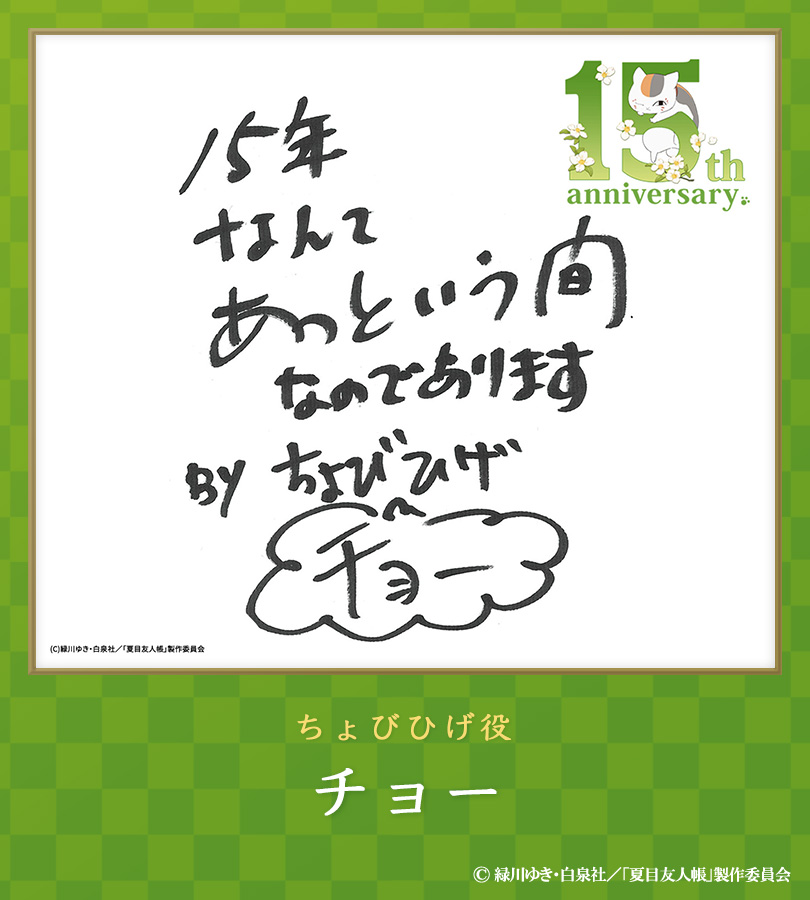 15th
anniversary
15年
なんて
あっという間
なのであります
BY ちょびひげ
チョー
(C)緑川ゆき・白泉社／「夏目友人帳」製作委員会
ちょびひげ役
チョー
© 緑川ゆき・白泉社／「夏目友人帳」製作委員会